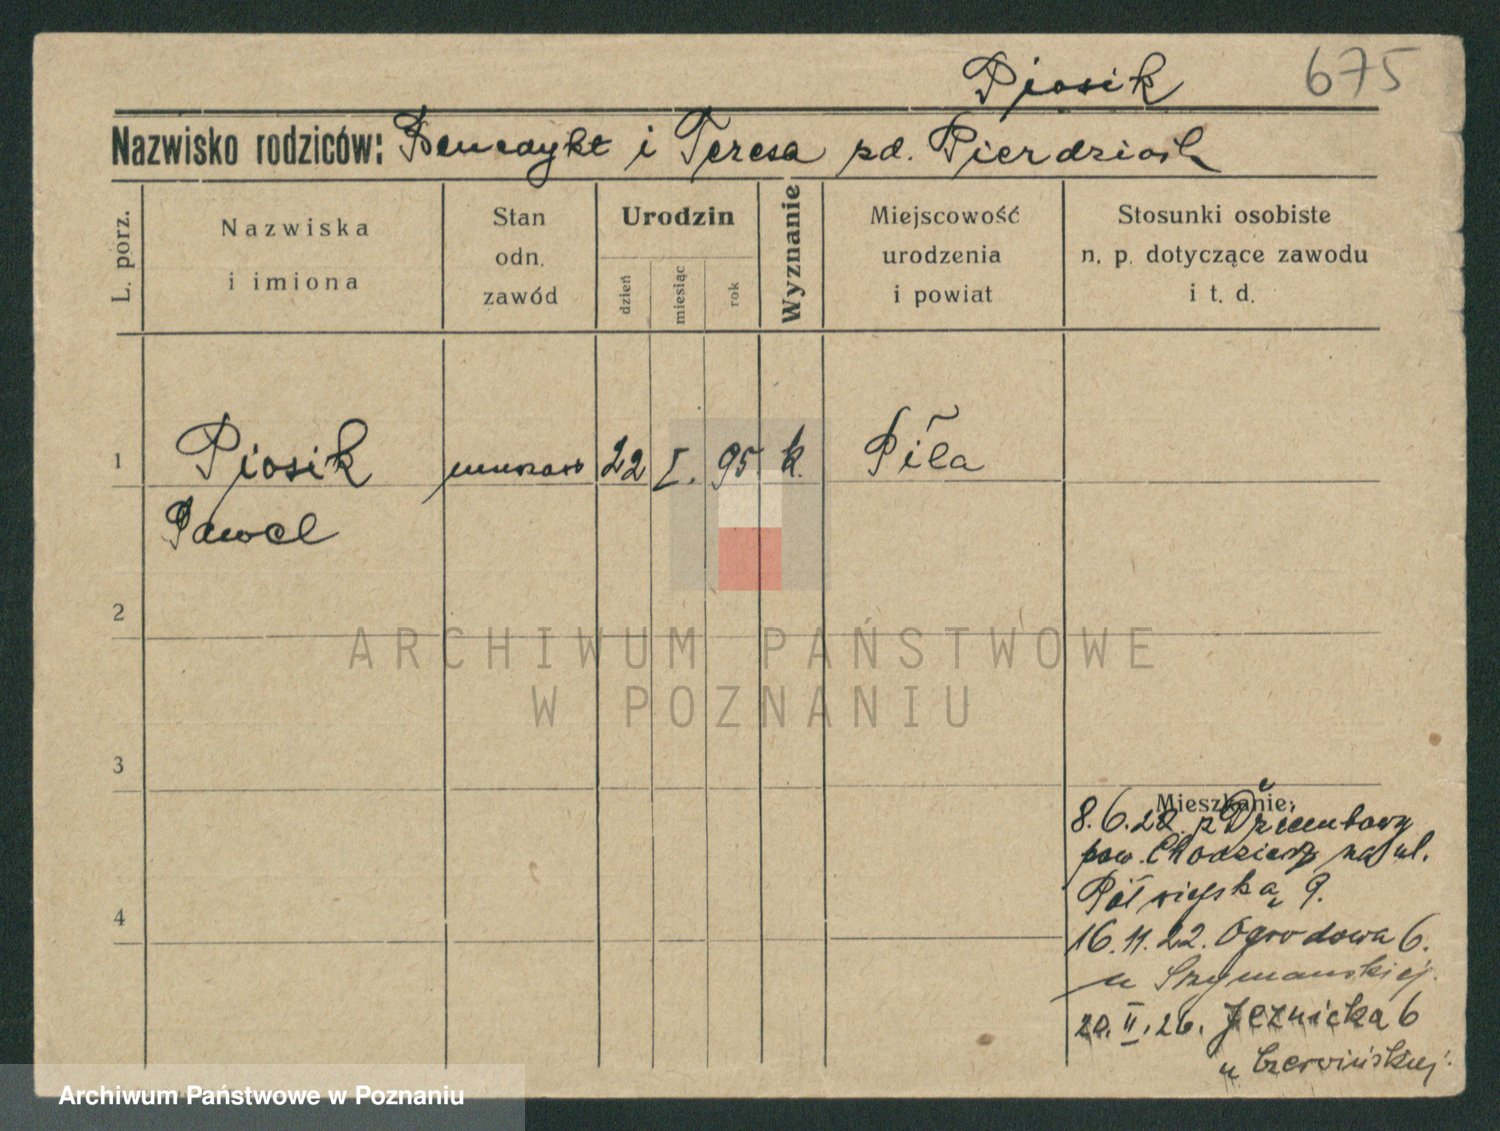 Piosik
675
Nazwisko rodziców: Benedykt i Teresa zd. Pierdziosk
L. porz.
Nazwiska
i imiona
Stan
odn.
zawód
Urodzin
dzień
miesiąc
rok
Wyznanie
Miejscowość
urodzenia
i powiat
Stosunki osobiste
n. p. dotyczące zawodu
i t. d.
1
Piosik
22
I.
95
k.
Piła
Pawel
2
3
4
Mieszkanie:
8.6.22. z
pow. Chodzież na ul.
Półwiejską 9.
16.11.22. Ogrodowa 6.
u Szymanskiej.
20.II.26. Jeznicka 6
u Czerwińskiej.
ARCHIWUM PAŃSTWOWE
W POZNANIU
Archiwum Państwowe w Poznaniu